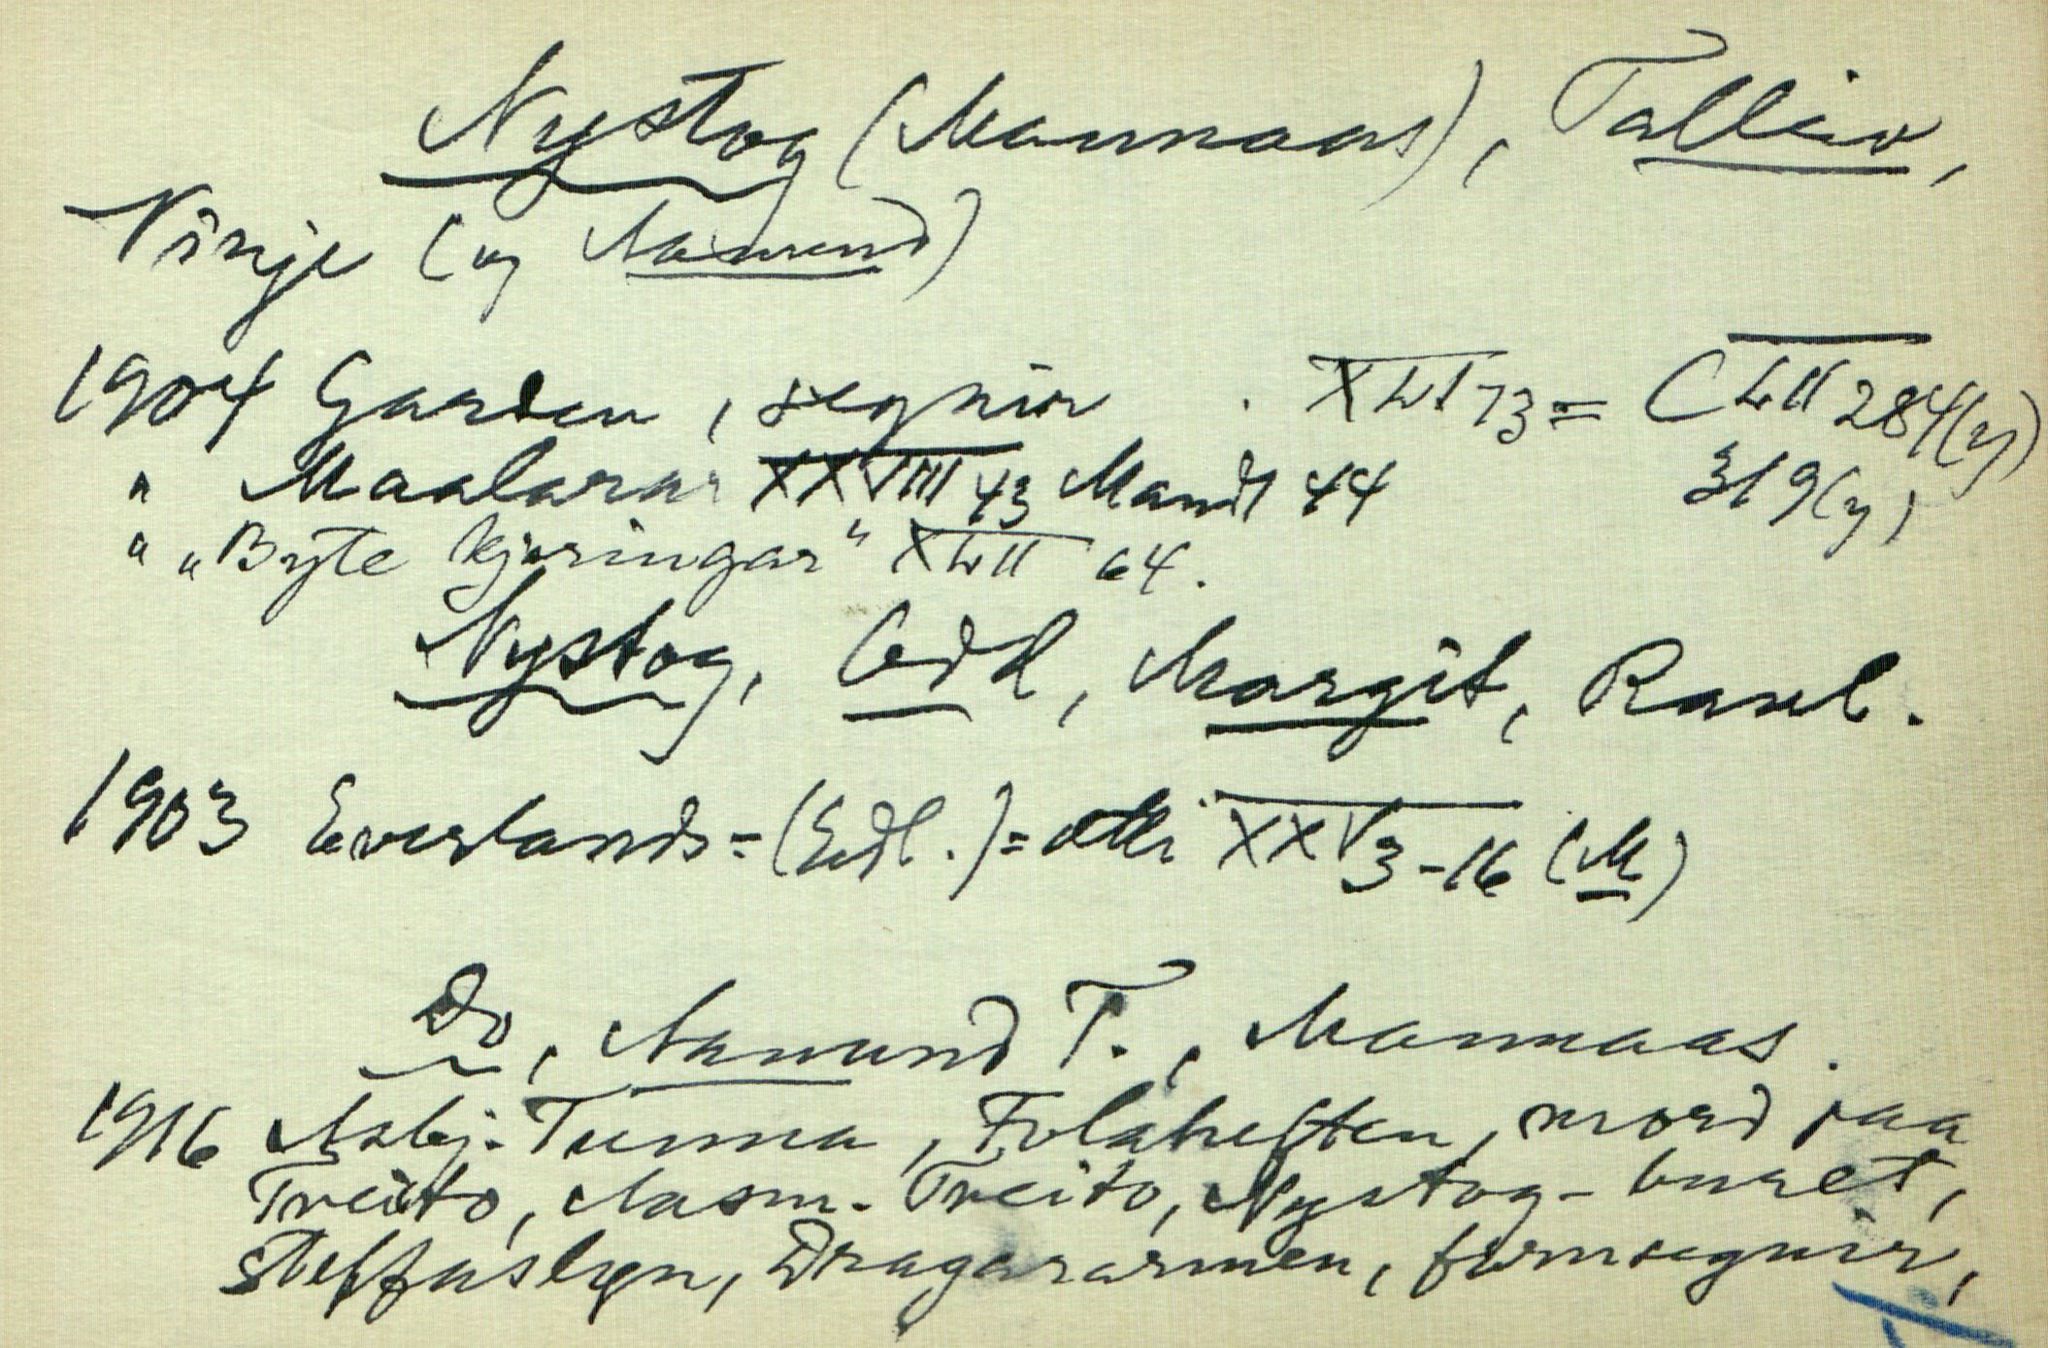 Nystog (Mannaas), Talleiv,
Vinje (og Aamund)
1904 Garden, segnir . XLI 73 = CLII 284(y)
" Maalarar XXVIII 43 Mandt 44 319(y)
" "Byte kjeringar" XLII 64.
Nystog, Edl, Margit, Rasul.
1903 Everlands = (Edl.) = XXV 3-16 (M)
Do, Aamund T., Mannaas.
1916 Asbj. Tunna, Folahesten, mord paa
Treito, Aasm. Treito, Nystog-buret,
Steffaslyn, Dragararmen, fornsegnir,